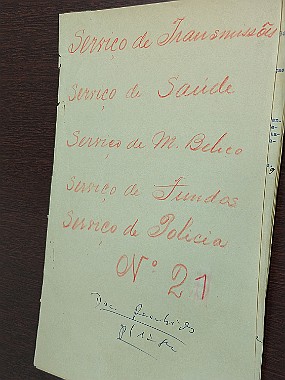 Serviço de Transmissões
Serviço de Saúde
Serviço de M. Belico
Serviço de Fundos
Serviço de Policia
Nº 21